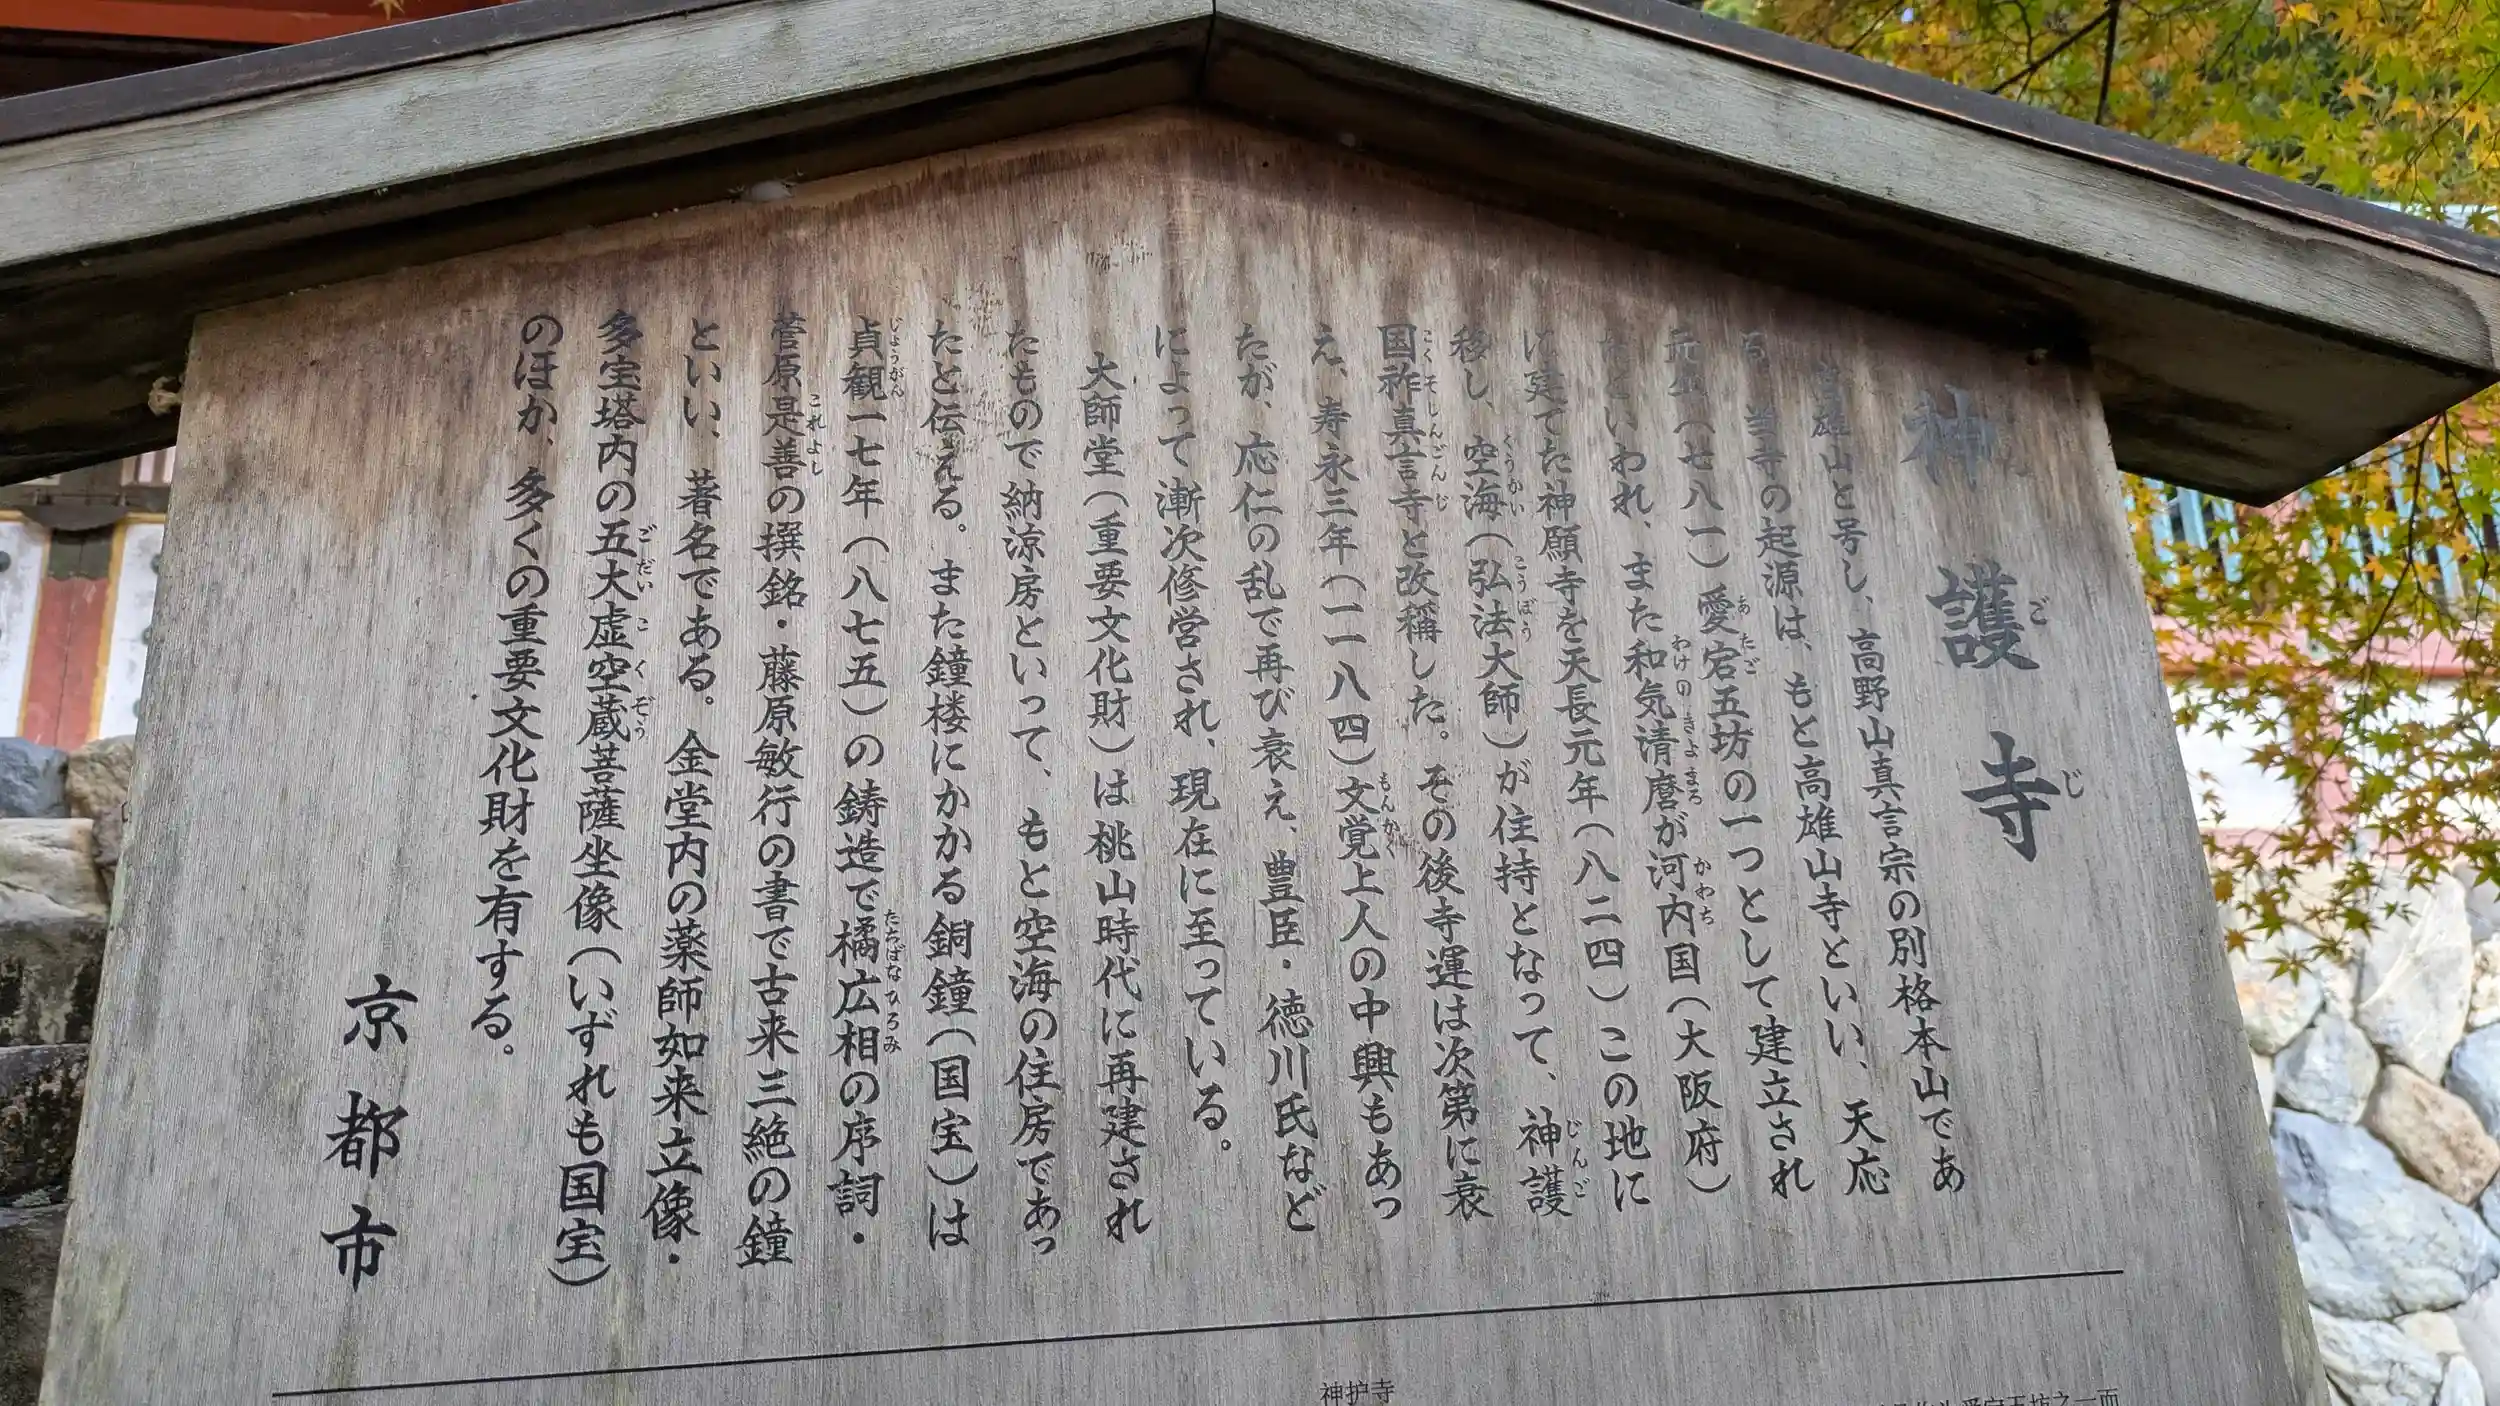 神護寺
高雄山と号し、高野山真言宗の別格本山であ
る。当寺の起源は、もと高雄山寺といい、天応
元年（七八一）愛宕五坊の一つとして建立され
たといわれ、また和気清麿が河内国（大阪府）
に建てた神願寺を天長元年（八二四）この地に
移し、空海（弘法大師）が住持となって、神護
国祚真言寺と改称した。その後寺運は次第に衰
え、寿永三年（一一八四）文覚上人の中興もあっ
たが、応仁の乱で再び衰え、豊臣・徳川氏など
によって漸次修営され、現在に至っている。
大師堂（重要文化財）は桃山時代に再建され
たもので納涼房といって、もと空海の住房であっ
たと伝える。また鐘楼にかかる銅鐘（国宝）は
貞観一七年（八七五）の鋳造で橘広相の序詞・
菅原是善の撰銘・藤原敏行の書で古来三絶の鐘
といい、著名である。金堂内の薬師如来立像・
多宝塔内の五大虚空蔵菩薩坐像（いずれも国宝）
のほか、多くの重要文化財を有する。
京都市
神护寺